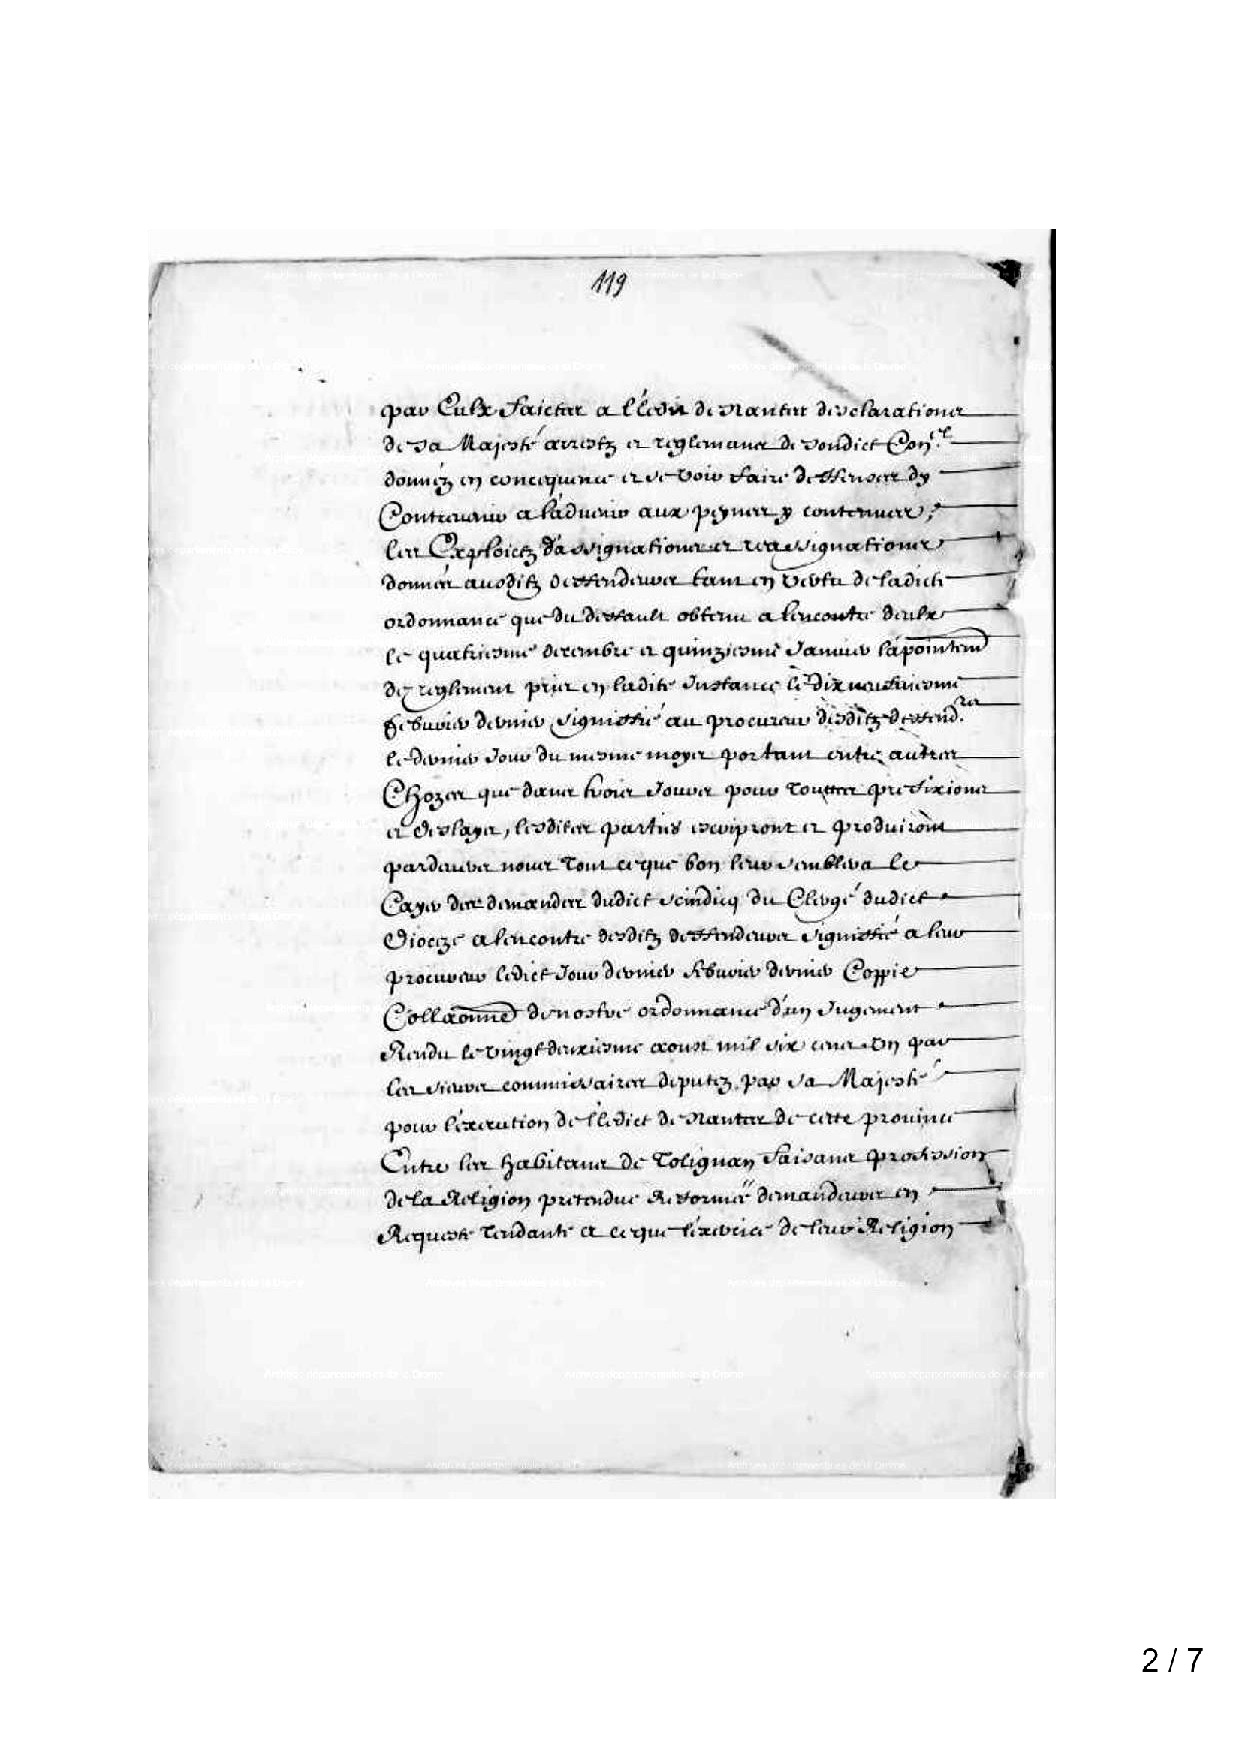 119
par Eulx faictes a l'Edit de Nantes declarations
de Sa Majesté arrestz et reglemans de sondict Con.el
donnéz en consequence et se voir faire deffenses dy
Contrevenir a l'advenir aux peynes y contenues,
les Exploictz d'assignations et reassignations
données ausditz deffendeurs tant en vertu de ladicte
ordonnance que du deffault obtenu a lencontre deulx
le quatriesme decembre et quinziesme Janvier lapointem
de reglement pris en ladite Instance le dix neufviesme
febvrier dernier signiffié au procureur desditz deffend.rs
le dernier Jour du mesme moys portant entre autres
Chozes que dans trois Jours pour touttes prefixions
et deslays, lesdites parties escripront et produiront
pardevers nous tout ce que bon leur semblera le
Cayer des demandes dudict scindicq du Clergé dudict
Dioceze a lencontre desditz deffendeurs signiffié a leur
procureur ledict Jour dernier febvrier dernier Coppie
Collaonnee de nostre ordonnance d'un Jugement
Rendu le vingt deuxiesme aoust mil six cens un par
les sieurs commissaires deputez par Sa Majesté
pour l'execution de l'Edict de Nantes de cette province
Entre les habitans de Tolignan faisans profession
de la Religion pretendue Refformée demandeurs en
Requeste tendante a ce que l'exercice de leur Religion
2 / 7